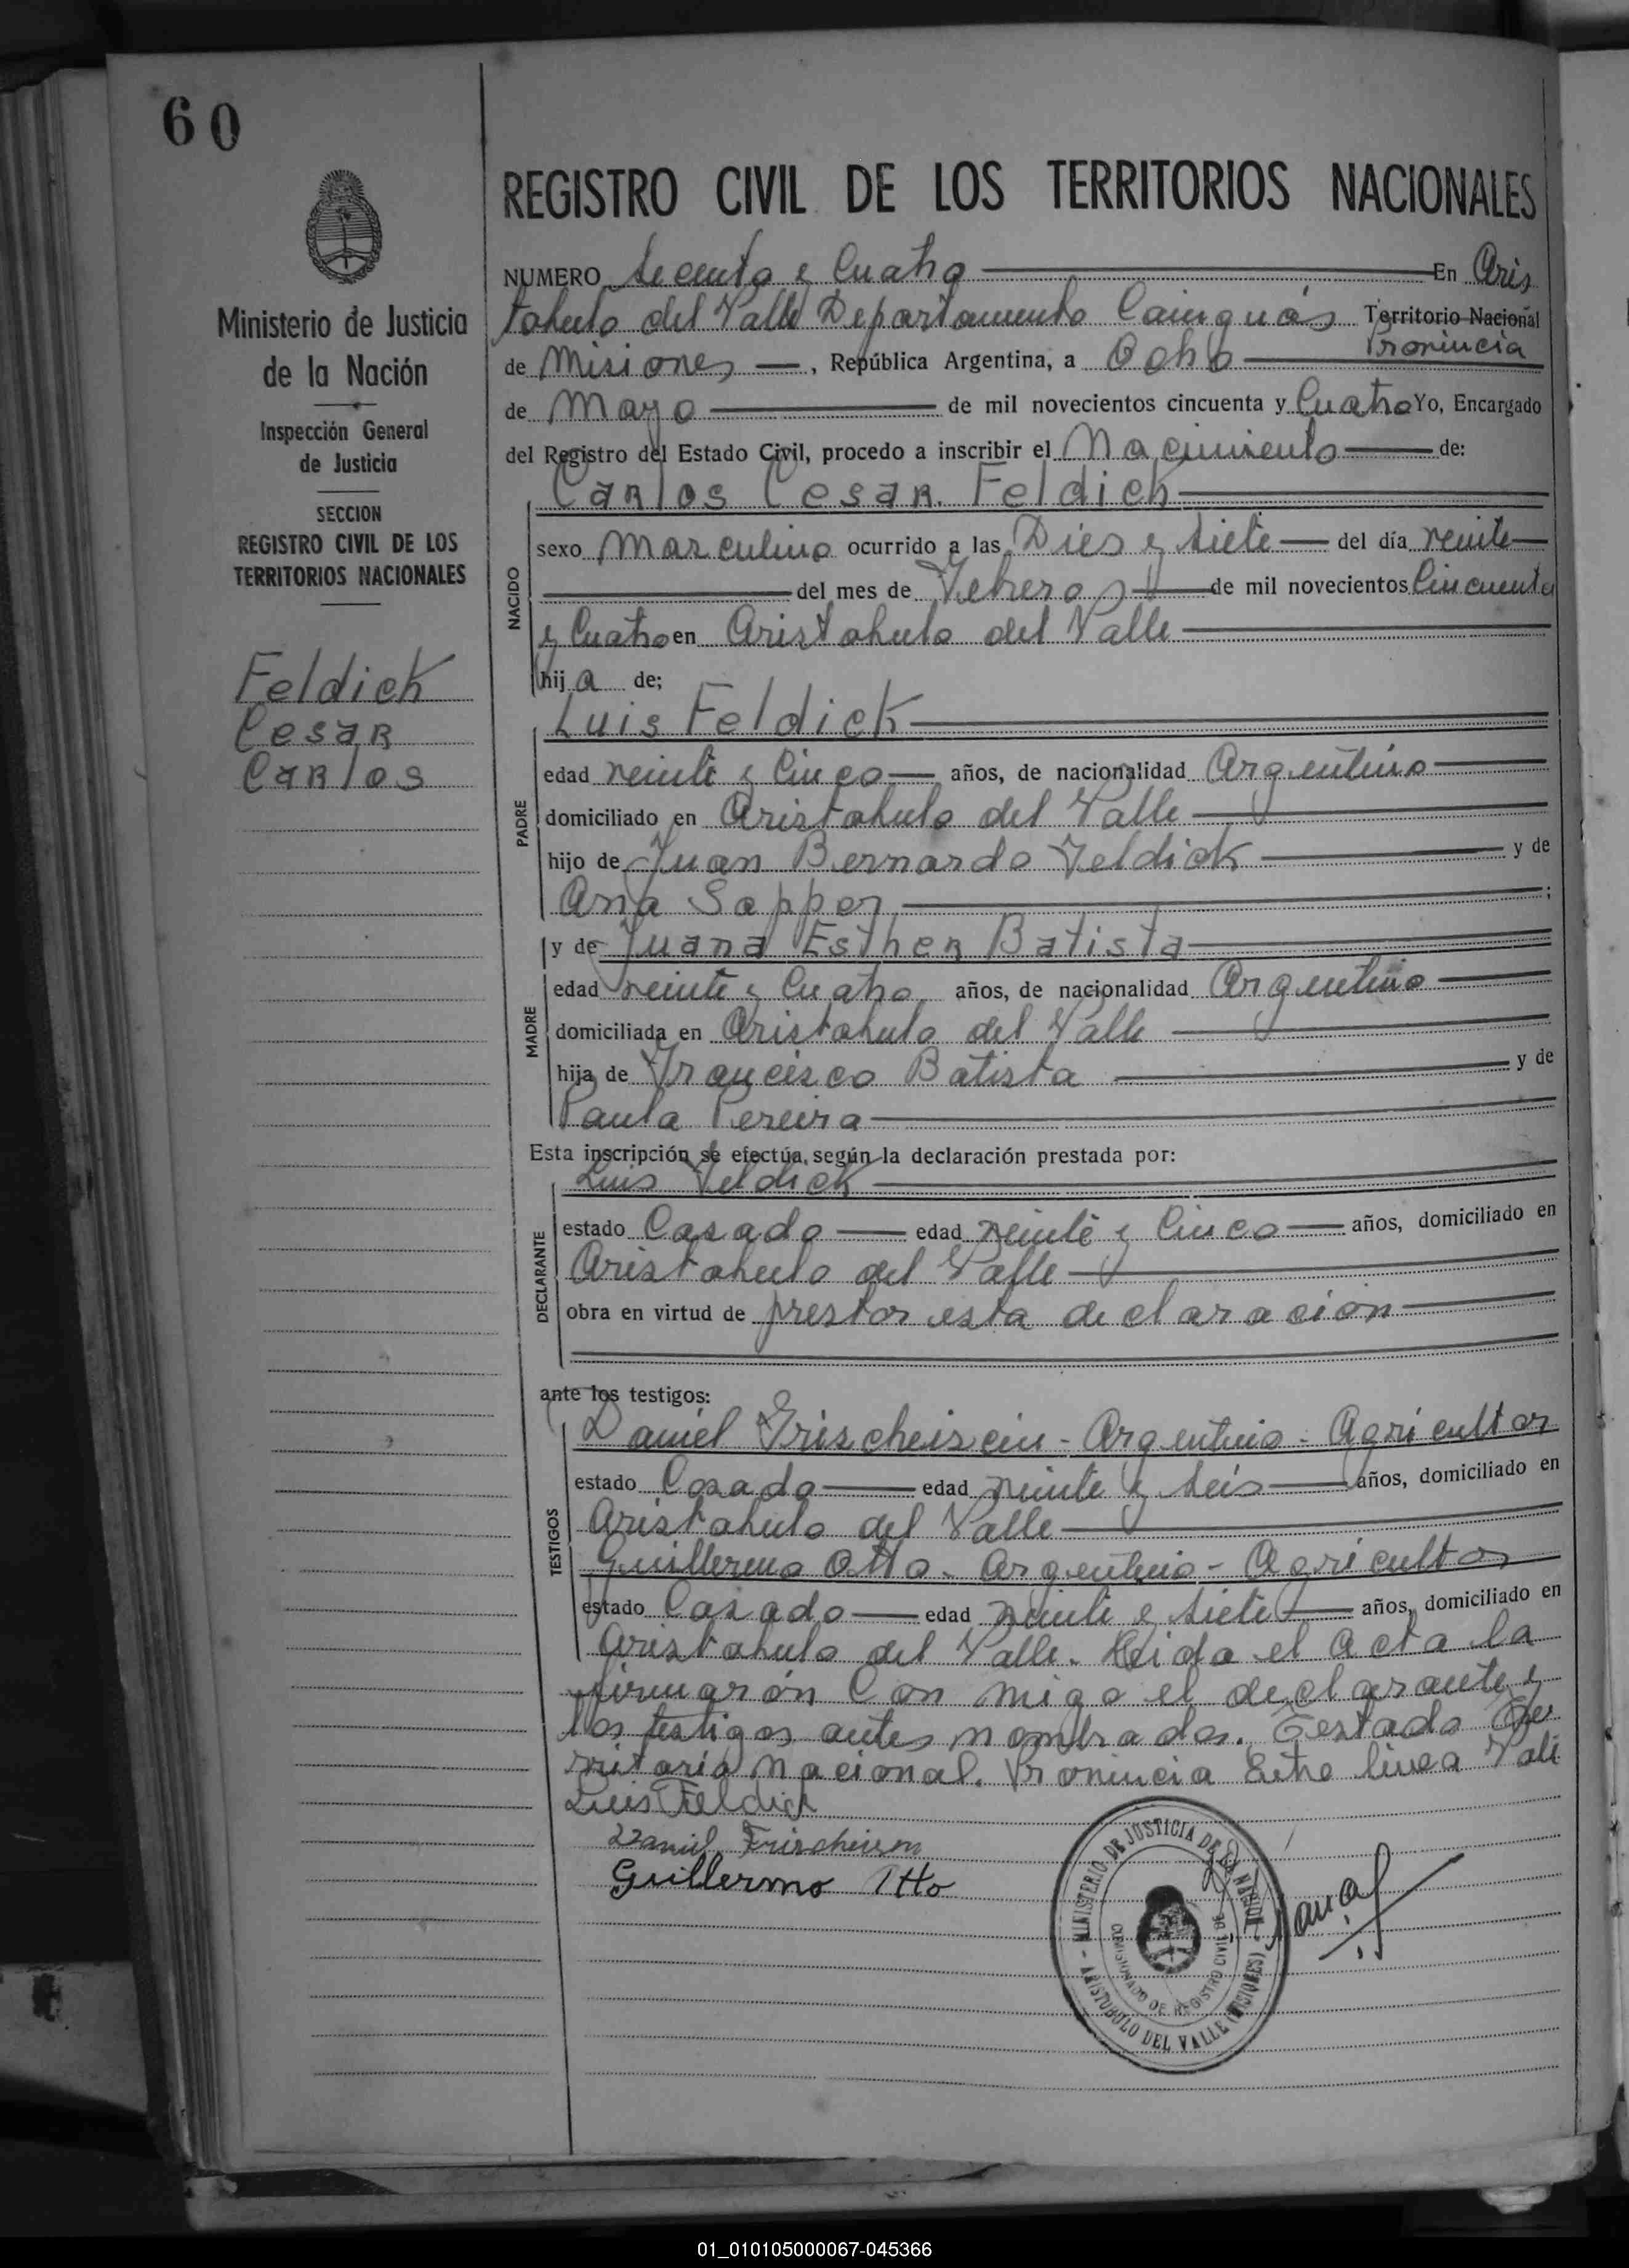 60
REGISTRO CIVIL DE LOS TERRITORIOS NACIONALES
Ministerio de Justicia
de la Nación
Inspección General
de Justicia
SECCION
REGISTRO CIVIL DE LOS
TERRITORIOS NACIONALES
Feldick
Cesar
Carlos
NUMERO Secenta y Cuatro En Aris
tobulo del Valle Departamento Cainguás Territorio Nacional
Provincia
de Misiones, República Argentina, a Ocho
de Mayo de mil novecientos cincuenta y Cuatro Yo, Encargado
del Registro del Estado Civil, procedo a inscribir el Nacimiento de:
Carlos Cesar Feldick
NACIDO
sexo Marculino ocurrido a las Dies y Siete del día veinte
del mes de Febrero de mil novecientos Cincuenta
y Cuatro en Aristobulo del Valle
hij a de;
Luis Feldick
PADRE
edad veinte y Cinco años, de nacionalidad Argentino
domiciliado en Aristobulo del Valle
hijo de Juan Bernardo Feldick y de
Ana Sapper;
MADRE
y de Juana Esther Batista
edad veinte y Cuatro años, de nacionalidad Argentino
domiciliada en Aristobulo del Valle
hija de Francisco Batista y de
Paula Pereira
Esta inscripción se efectúa, según la declaración prestada por:
Luis Feldick
DECLARANTE
estado Casado edad veinte y Cinco años, domiciliado en
Aristobulo del Valle
obra en virtud de prestar esta declaracion
ante los testigos:
Daniel Frischeisein - Argentino - Agricultor
TESTIGOS
estado Casado edad veinte y Seis años, domiciliado en
Aristobulo del Valle
Guillermo Otto - Argentino - Agricultor
estado Casado edad veinte e Siete años, domiciliado en
Aristobulo del Valle. Leida el Acta la
firmarón Con migo el declarante y
los testigos antes nombrados. Testado Te
rritorio Nacional. Provincia Entre linea Vale
Luis Feldick
Daniel
Guillermo Otto
MINISTERIO DE JUSTICIA DE LA NACION
COMISIONADO DE REGISTRO CIVIL DE
ARISTOBULO DEL VALLE (MISIONES)
01_010105000067-045366